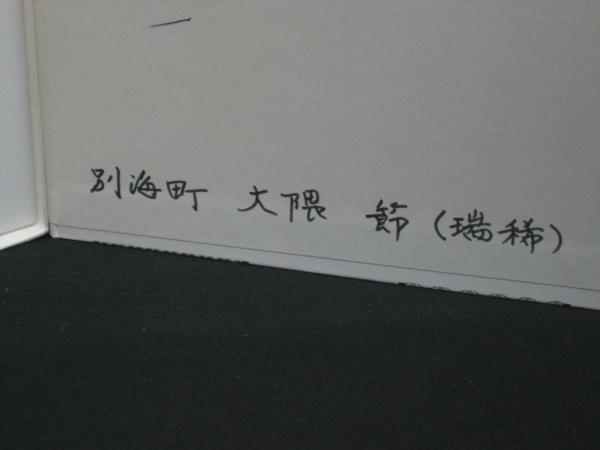 別海町 大隈 節（瑞稀）